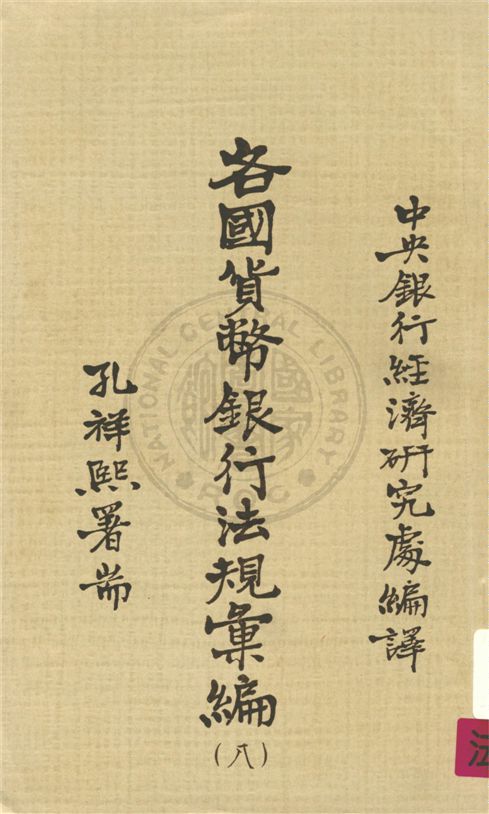 中央銀行經濟研究處編譯
各國貨幣銀行法規彙編
(八)
孔祥熙署耑
NATIONAL CENTRAL LIBRARY
R.O.C
法